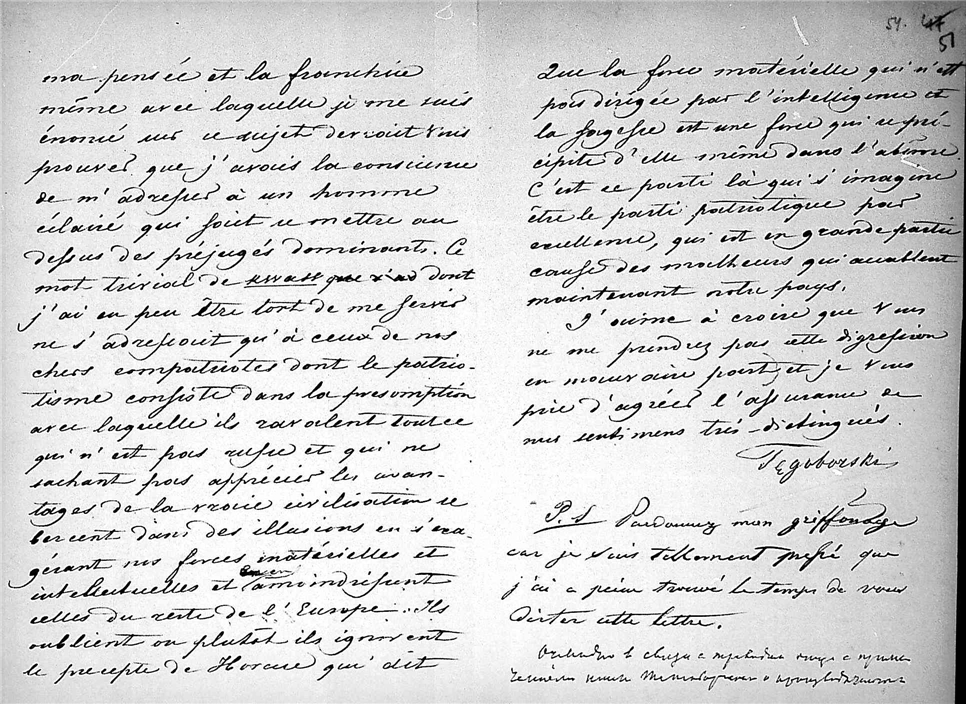 ma pensée et la franchise
même avec laquelle je me suis
énoncé sur ce sujet devroit Vous
prouver que j'avais la conscience
de m'adresser à un homme
éclairé qui sait se mettre au
dessus des préjugés dominants. Ce
mot trivial de kwass que dont
j'ai eu peu être tort de me servir
ne s'adressoit qu'à ceux de nos
chers compatriotes dont le patrio-
tisme consiste dans la presomption
avec laquelle ils ravalent tout ce
qui n'est pas russe et qui ne
sachant pas apprécier les avan-
tages de la vraie civilisation se
bercent dans des illusions en s'exa-
gérant nos forces matérielles et
intellectuelles et en amoindrissent
celles du reste de l'Europe. Ils
oublient ou plutot ils ignorent
le precepte de Horace qui dit
54. 47
51
Que la force matérielle qui n'est
pas dirigée par l'intelligence et
la sagesse est une force qui se pré-
cipite d'elle même dans l'abime.
C'est ce parti là qui s'imagine
être le parti patriotique par
excellence, qui est en grande partie
cause des malheurs qui accablent
maintenant notre pays.
J'aime à croire que Vous
ne me prendrez pas cette digression
en mauvaise part, et je Vous
prie d'agréer l'assurance de
mes sentimens très-distingués.
Tęgoborski
P.S Pardonnez mon griffonage
car je suis tellement pressé que
j'ai a peine trouvé le temps de vous
dicter cette lettre.